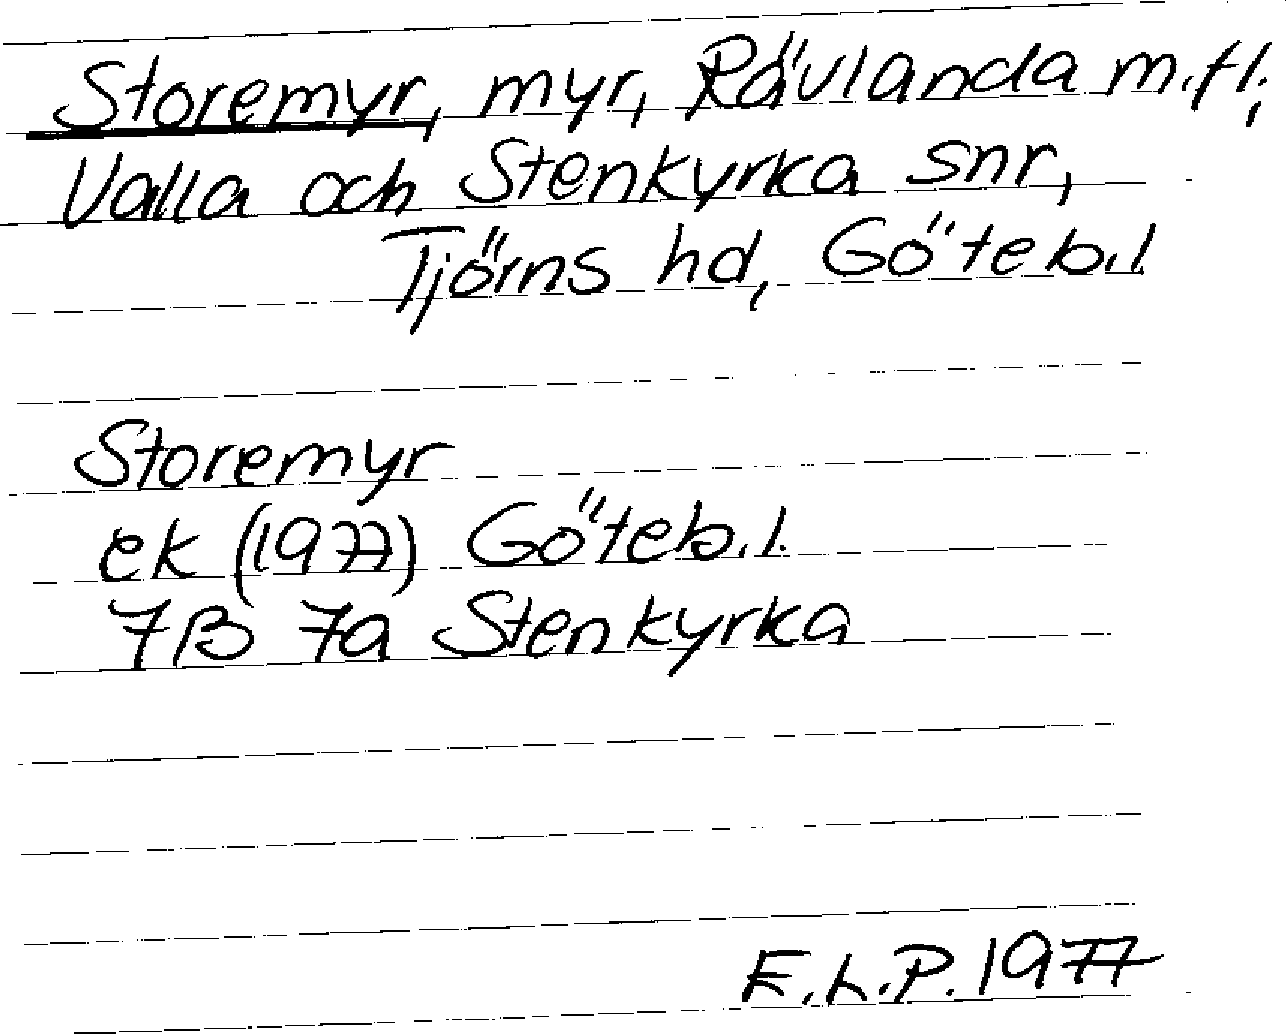 Storemyr, myr, Rävlanda m.fl.,
Valla och Stenkyrka snr,
Tjörns hd, Göteb.l.
Storemyr
ek (1977) Göteb.l.
7B 7a Stenkyrka
E.L.P. 1977